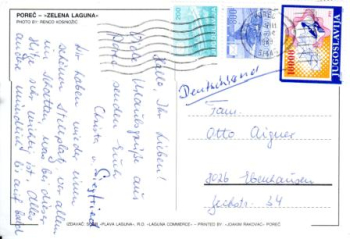 POREČ – »ZELENA LAGUNA«
PHOTO BY RENCO KOSINOŽIĆ
Hallo, Ihr Lieben!
Liebe Urlaubsgrüße aus
Poreč senden Euch
Christa u. Siegfried
Wir haben wieder einen
schönen Stellplatz, vor allem
im Schatten, was bei dieser
Hitze sehr wichtig ist. Alles
andere mündlich! Bis auf bald
JUGOSLAVIJA
10000
Deutschland
Fam.
Otto Aigner
8026 Ebenhausen
64
IZDAVAČ: SOUR »PLAVA LAGUNA« R.O. »LAGUNA COMMERCE« – PRINTED BY »JOAKIM RAKOVAC« POREČ